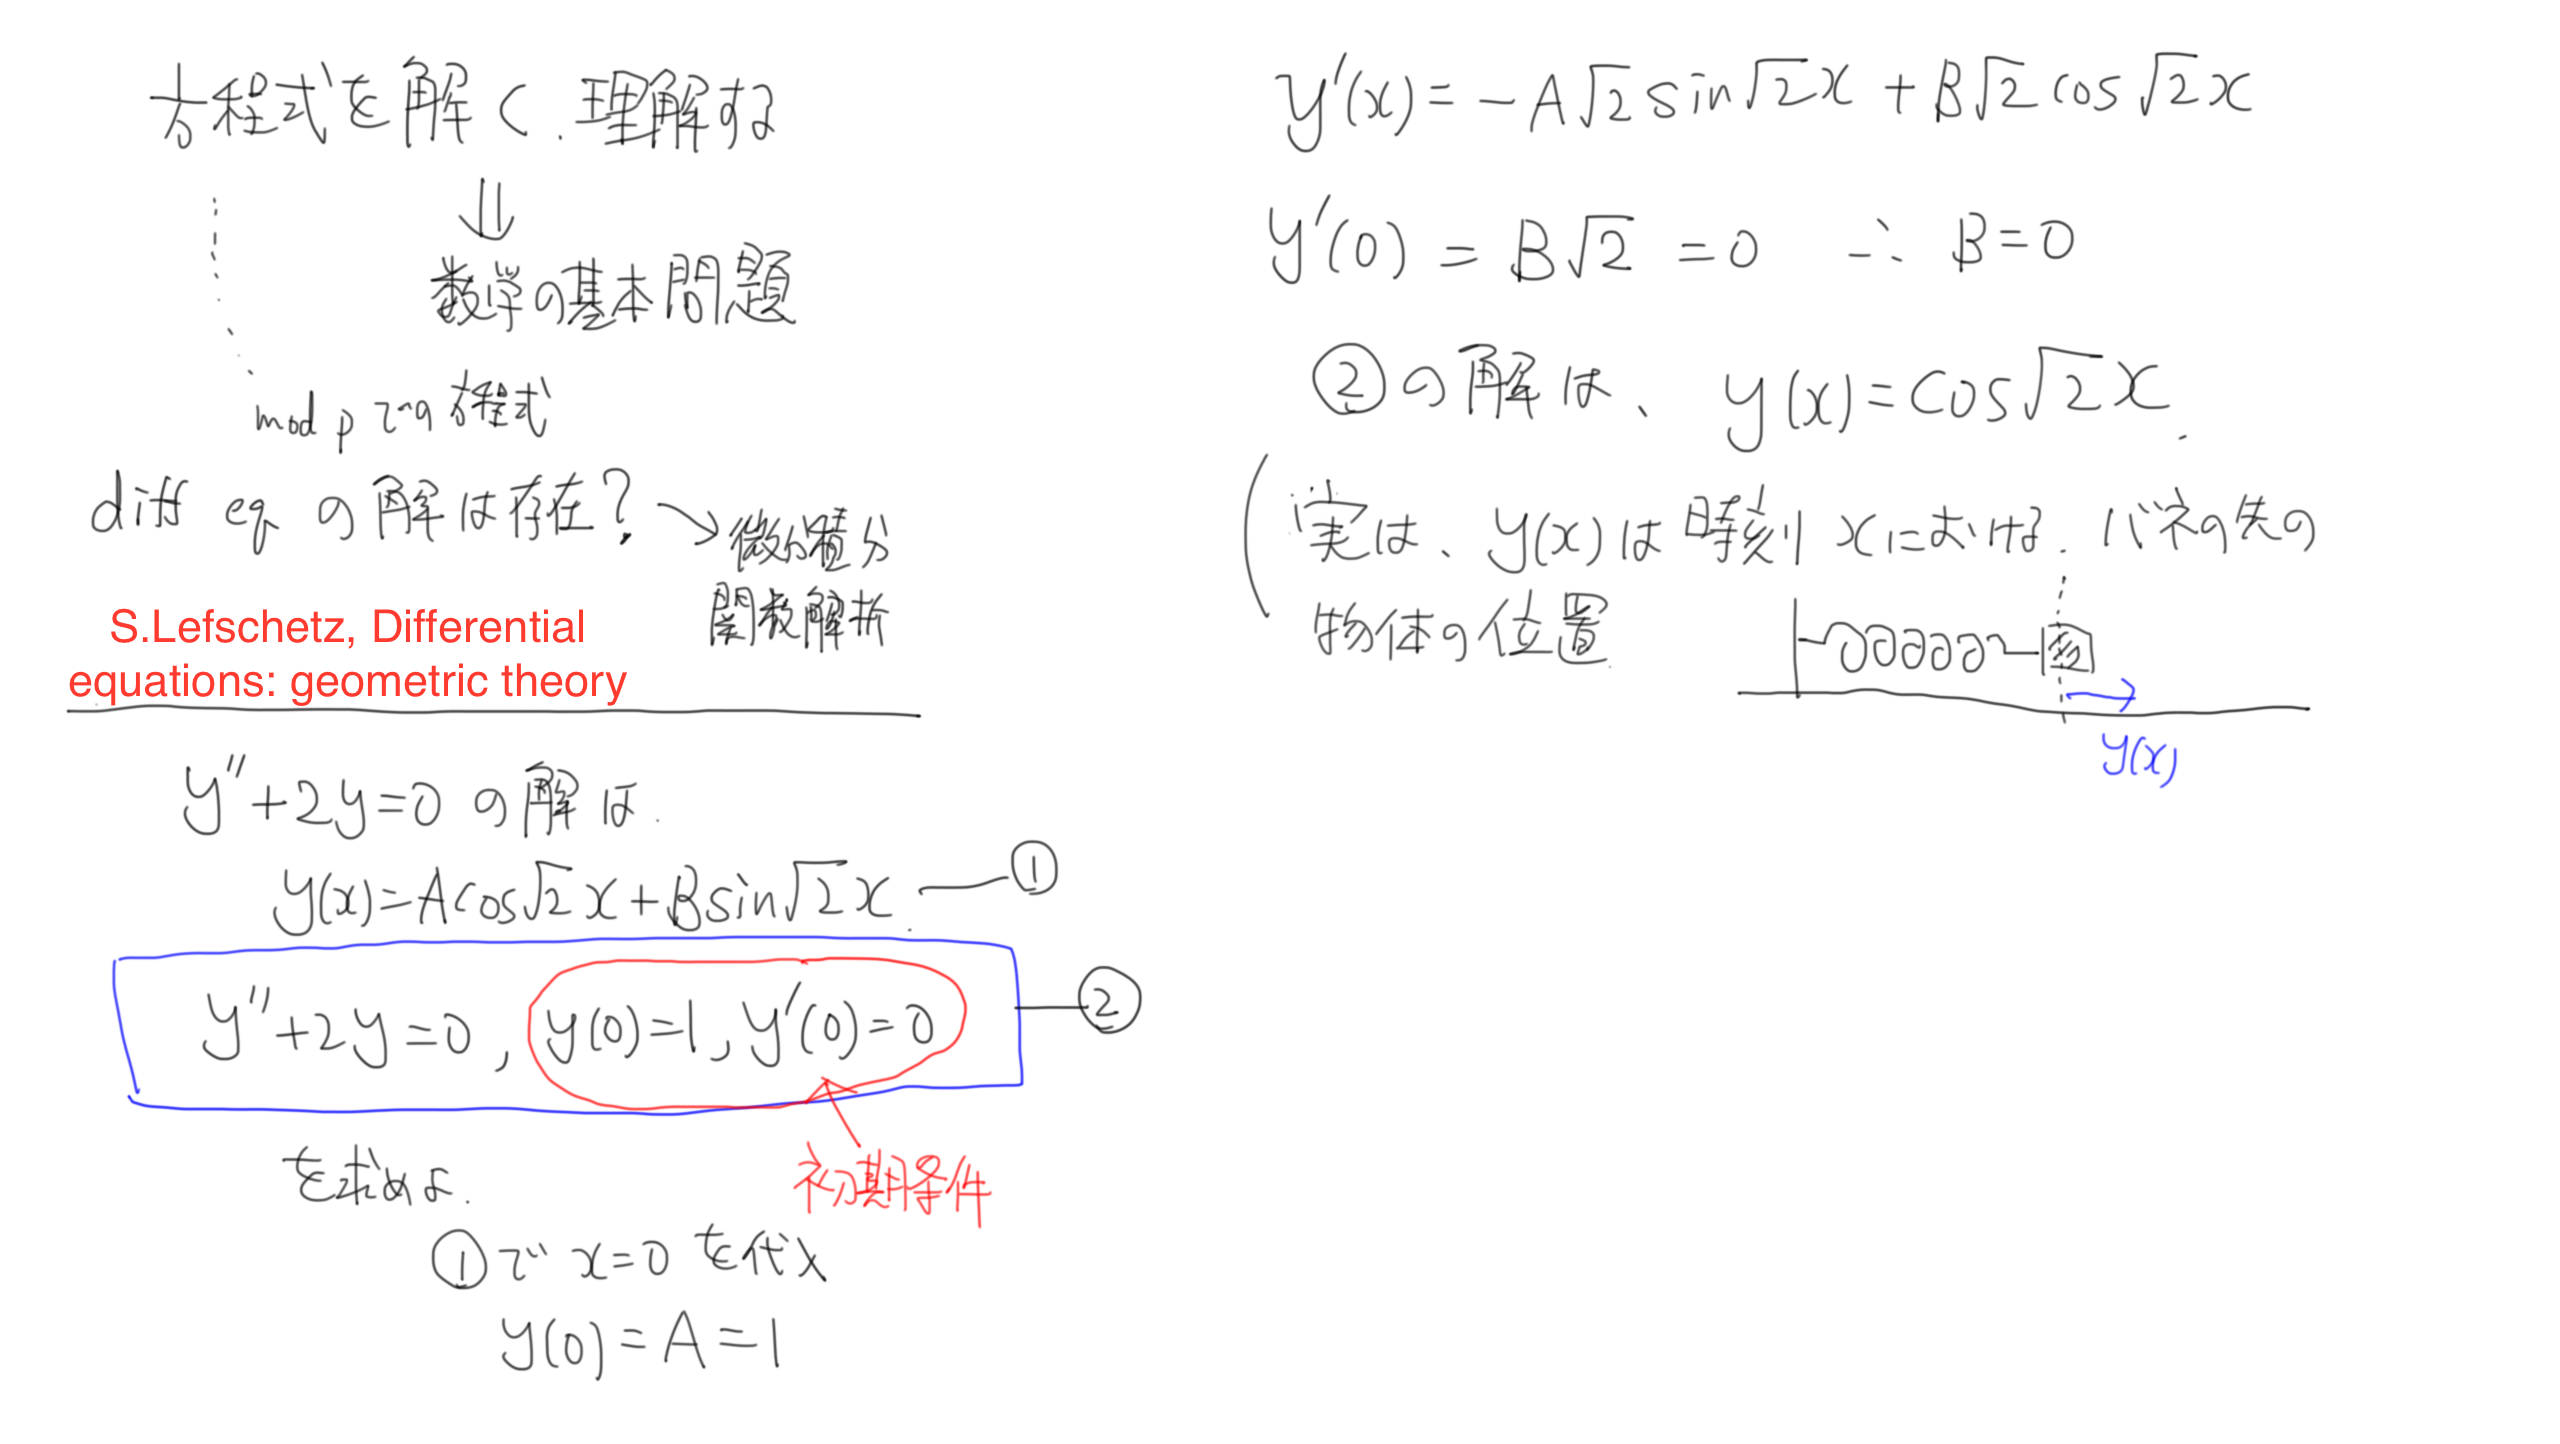 方程式を解く.理解する
⇓
数学の基本問題
mod p での方程式
diff eq の解は存在?→微分積分
関数解析
S.Lefschetz, Differential
equations: geometric theory
y''+2y=0 の解は.
y(x)=Acos√2x+Bsin√2x. ー①
y''+2y=0, y(0)=1, y'(0)=0 ー②
初期条件
を求めよ.
①で x=0 を代入
y(0)=A=1
y'(x)=-A√2sin√2x+B√2cos√2x
y'(0)=B√2=0 ∴ B=0
②の解は、y(x)=cos√2x.
(実は、y(x)は時刻xにおける.バネの先の
物体の位置.
y(x)